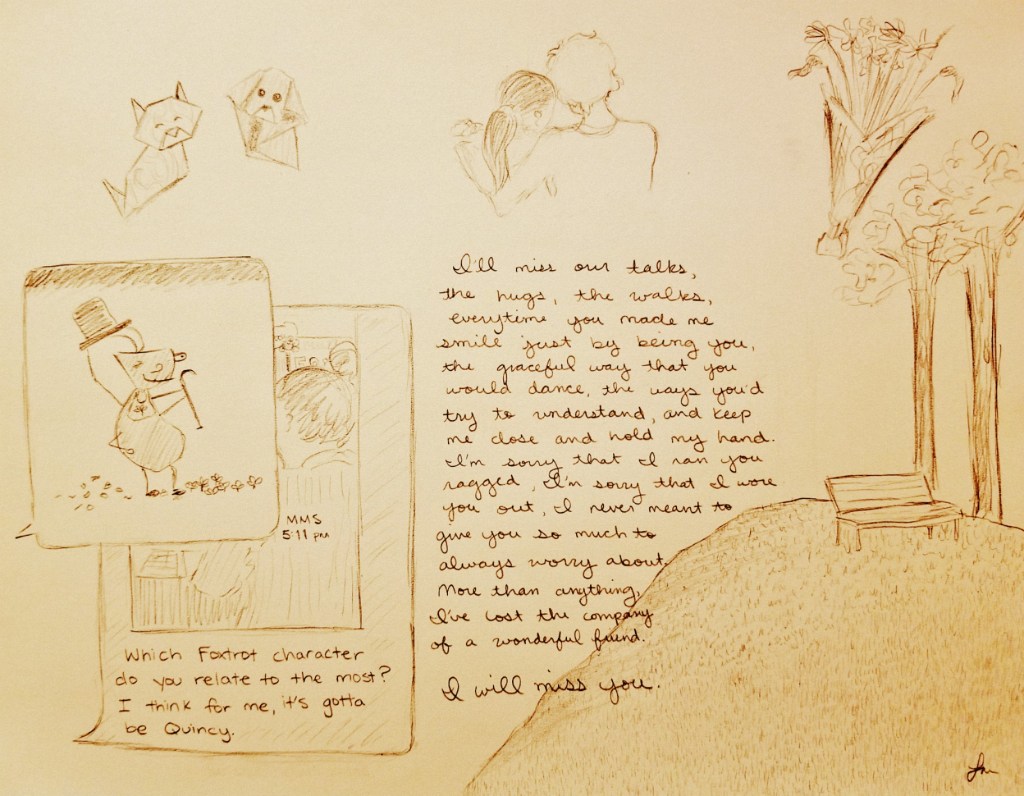 MMS
5:11 PM
Which Foxtrot character
do you relate to the most?
I think for me, it's gotta
be Quincy.
I'll miss our talks,
the hugs, the walks,
everytime you made me
smile just by being you,
the graceful way that you
would dance, the ways you'd
try to understand, and keep
me close and hold my hand.
I'm sorry that I ran you
ragged, I'm sorry that I wore
you out, I never meant to
give you so much to
always worry about.
More than anything,
I've lost the company
of a wonderful friend.
I will miss you.